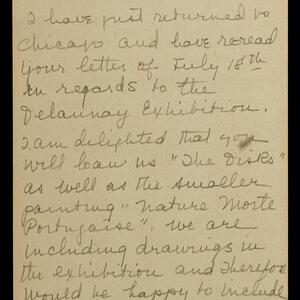 I have just returned to
Chicago and have reread
your letter of July 18th
in regards to the
Delaunay Exhibition.
I am delighted that you
will loan us "The Disks"
as well as the smaller
painting "Nature Morte
Portugaise". We are
including drawings in
the exhibition and therefore
would be happy to include